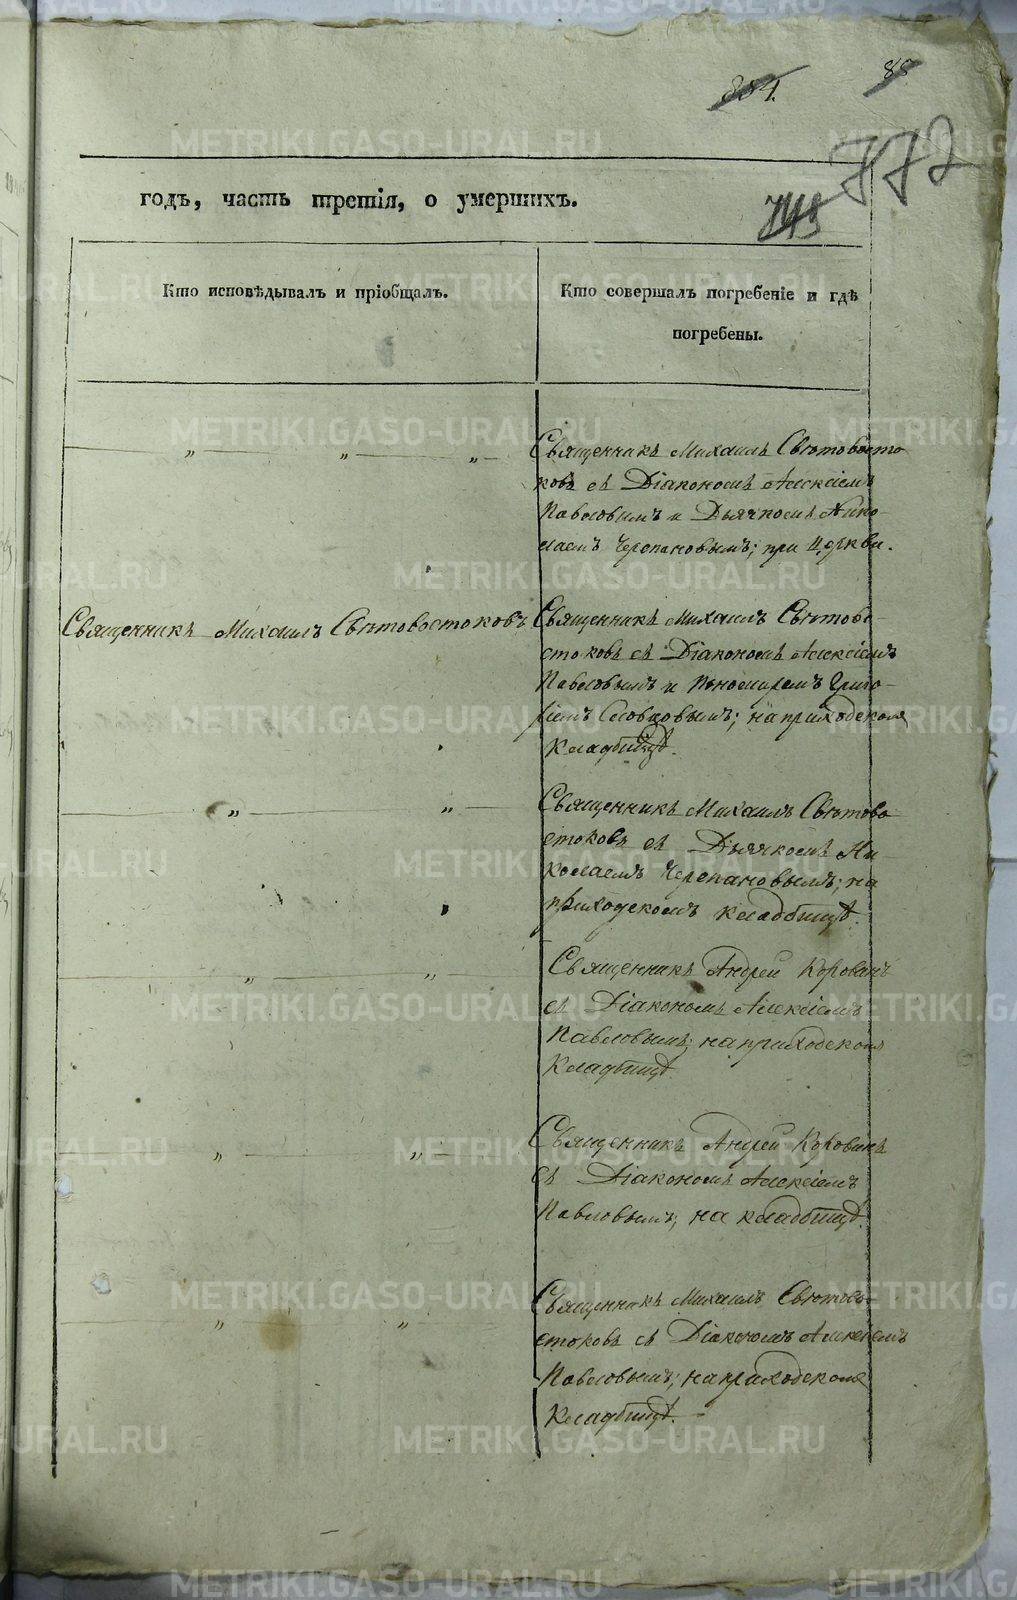 884.
88
772
годъ, часть третія, о умершихъ.
Кто исповѣдывалъ и пріобщалъ.
Кто совершалъ погребеніе и гдѣ
погребены.
Священникъ Михаилъ Свѣтовосто
ковъ съ Діакономъ Алексіемъ
Павловымъ и Дьячкомъ Нико-
лаемъ Черепановымъ; при Церкви.
Священникъ Михаилъ Свѣтовостоковъ
Священникъ Михаилъ Свѣтово-
стоковъ съ Діакономъ Алексіемъ
Павловымъ и Пономаремъ Григо-
ріемъ Словцовымъ; на приходском
Кладбищѣ.
Священникъ Михаилъ Свѣтово
стоковъ съ Дьячкомъ Ни-
колаемъ Черепановымъ; на
приходскомъ кладбищѣ.
Священникъ Андрей Коровинъ
съ Діакономъ Алексіемъ
Павловымъ; на приходском
Кладбищѣ
Священникъ Андрей Коровинъ
съ Діакономъ Алексіемъ
Павловымъ; на кладбищѣ.
Священникъ Михаилъ Свѣтово-
стоковъ съ Діакономъ Алексіемъ
Павловымъ; на приходском
Кладбищѣ.
METRIKI.GASO-URAL.RU